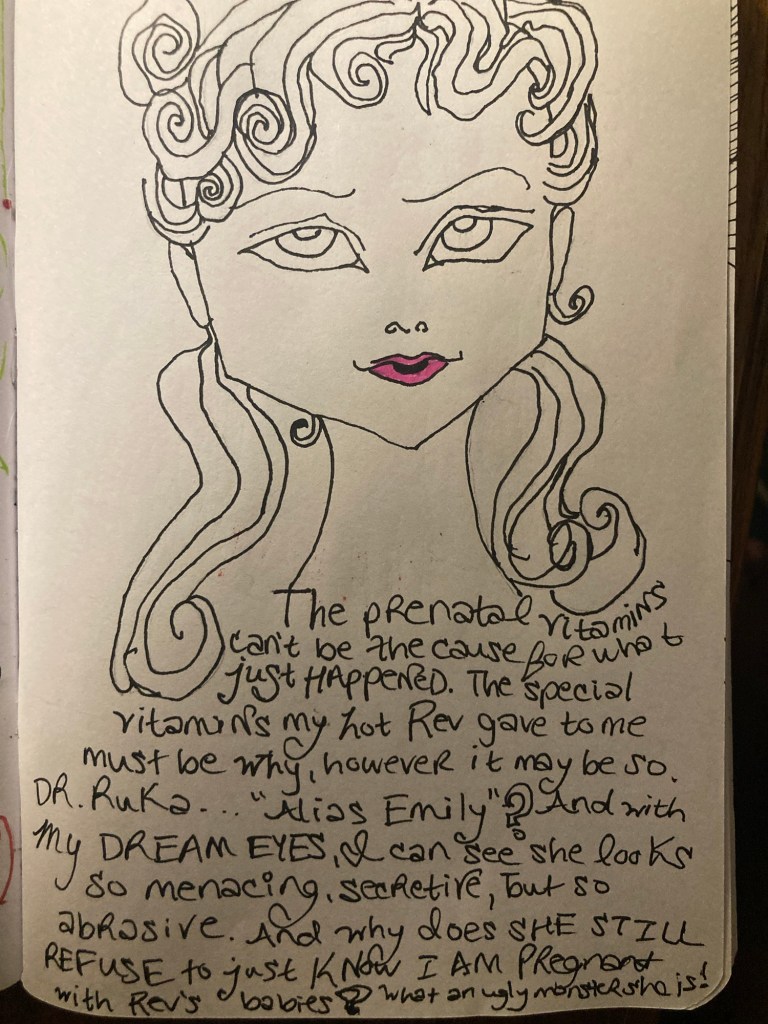 The prenatal vitamins
can't be the cause for what
just HAPPENED. The special
vitamins my hot Rev gave to me
must be why, however it may be so.
DR. Ruka... "Alias Emily"? And with
my DREAM EYES, I can "see" she looks
so menacing, secretive, but so
abrasive. And why does SHE STILL
REFUSE to just KNOW I AM PREgnant
with Rev's babies? What an ugly monster she is!